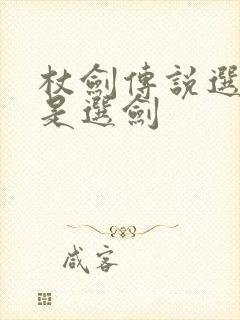 杖劍傳說選
是選劍
咸客